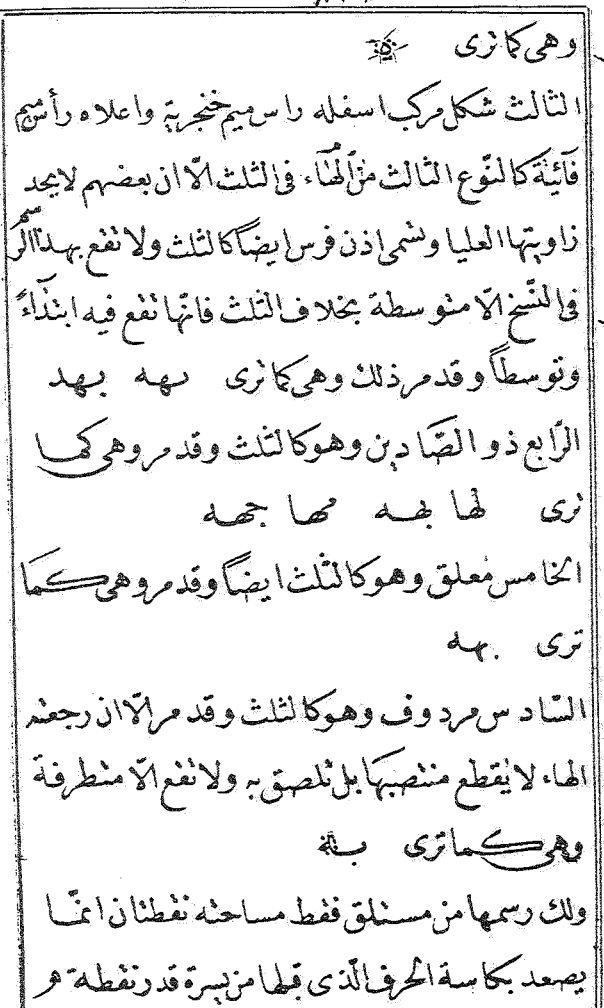 وهى كما ترى ه
الثالث شكل مركب اسفله راس ميم خنجرية واعلاه رأس ميم
قآئية كالنّوع الثالث من الهآء فى الثلث الّا ان بعضهم لايحد
زاويتها العليا وتسمى اذن فرس ايضاً كالثلث ولا تقع بهذا الرسم
فى النّسخ الّا متوسطة بخلاف الثلث فانّها تقع فيه ابتدآءً
وتوسطاً وقد مر ذلك وهى كما ترى بهه بهد
الرّابع ذو الصّادين وهو كالثلث وقد مر وهى كما
ترى لها بهه مها جهه
الخامس مُعلق وهو كالثلث ايضاً وقد مر وهى كما
ترى بهه
السّادس مردوف وهو كالثلث وقد مر الّا ان رجعته
الهاء لا يقطع منتصبها بل تلصق به ولا تقع الّا متطرفة
وهى كما ترى بـه
ولك رسمها من مستلق فقط مساحته نقطتان انمّا
يصعد بكاسة الحرف الّذى قبلها من يسرة قدر نقطة هو